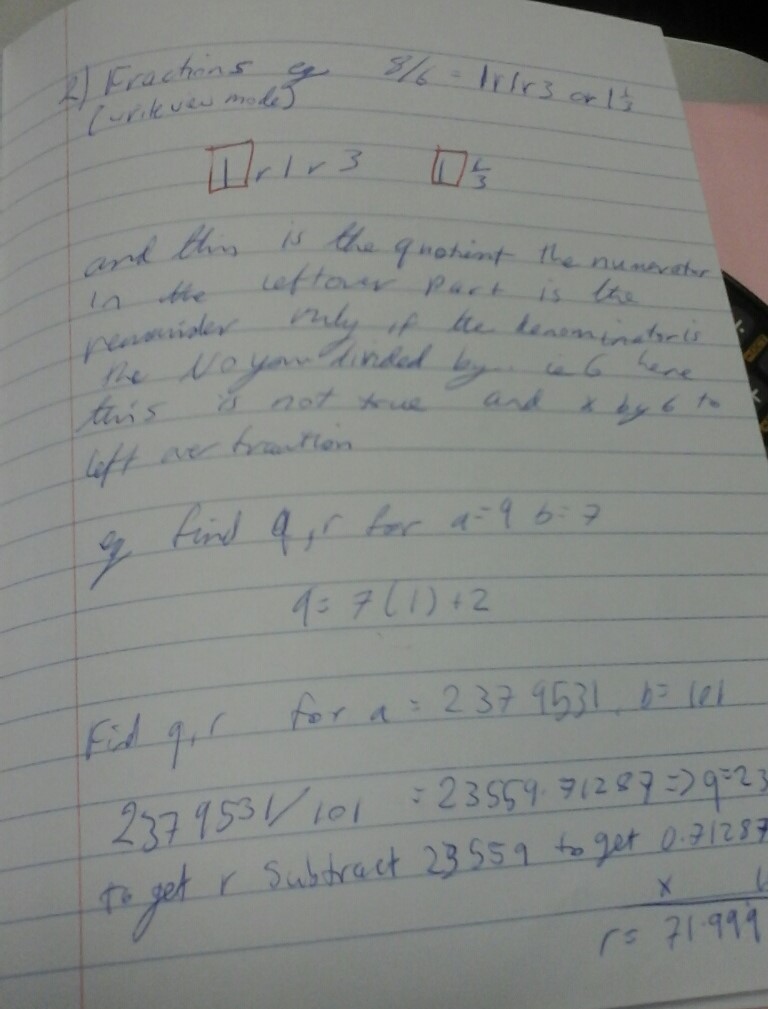 2) Fractions eg 8/6 = 1r1r3 or 1 1/3
(writeview mode)
1 r 1 r 3 1 1/3
and this is the quotient the numerator
in the leftover part is the
remainder only if the denominator is
the No you divided by ie 6 here
this is not true and x by 6 to
left over fraction
eg find q, r for a=9 b=7
9= 7(1)+2
Fid q, r for a = 2379531. b= 101
2379531/101 = 23559.71287 => q=23
to get r subtract 23559 to get 0.71287
x 1
r= 71.999